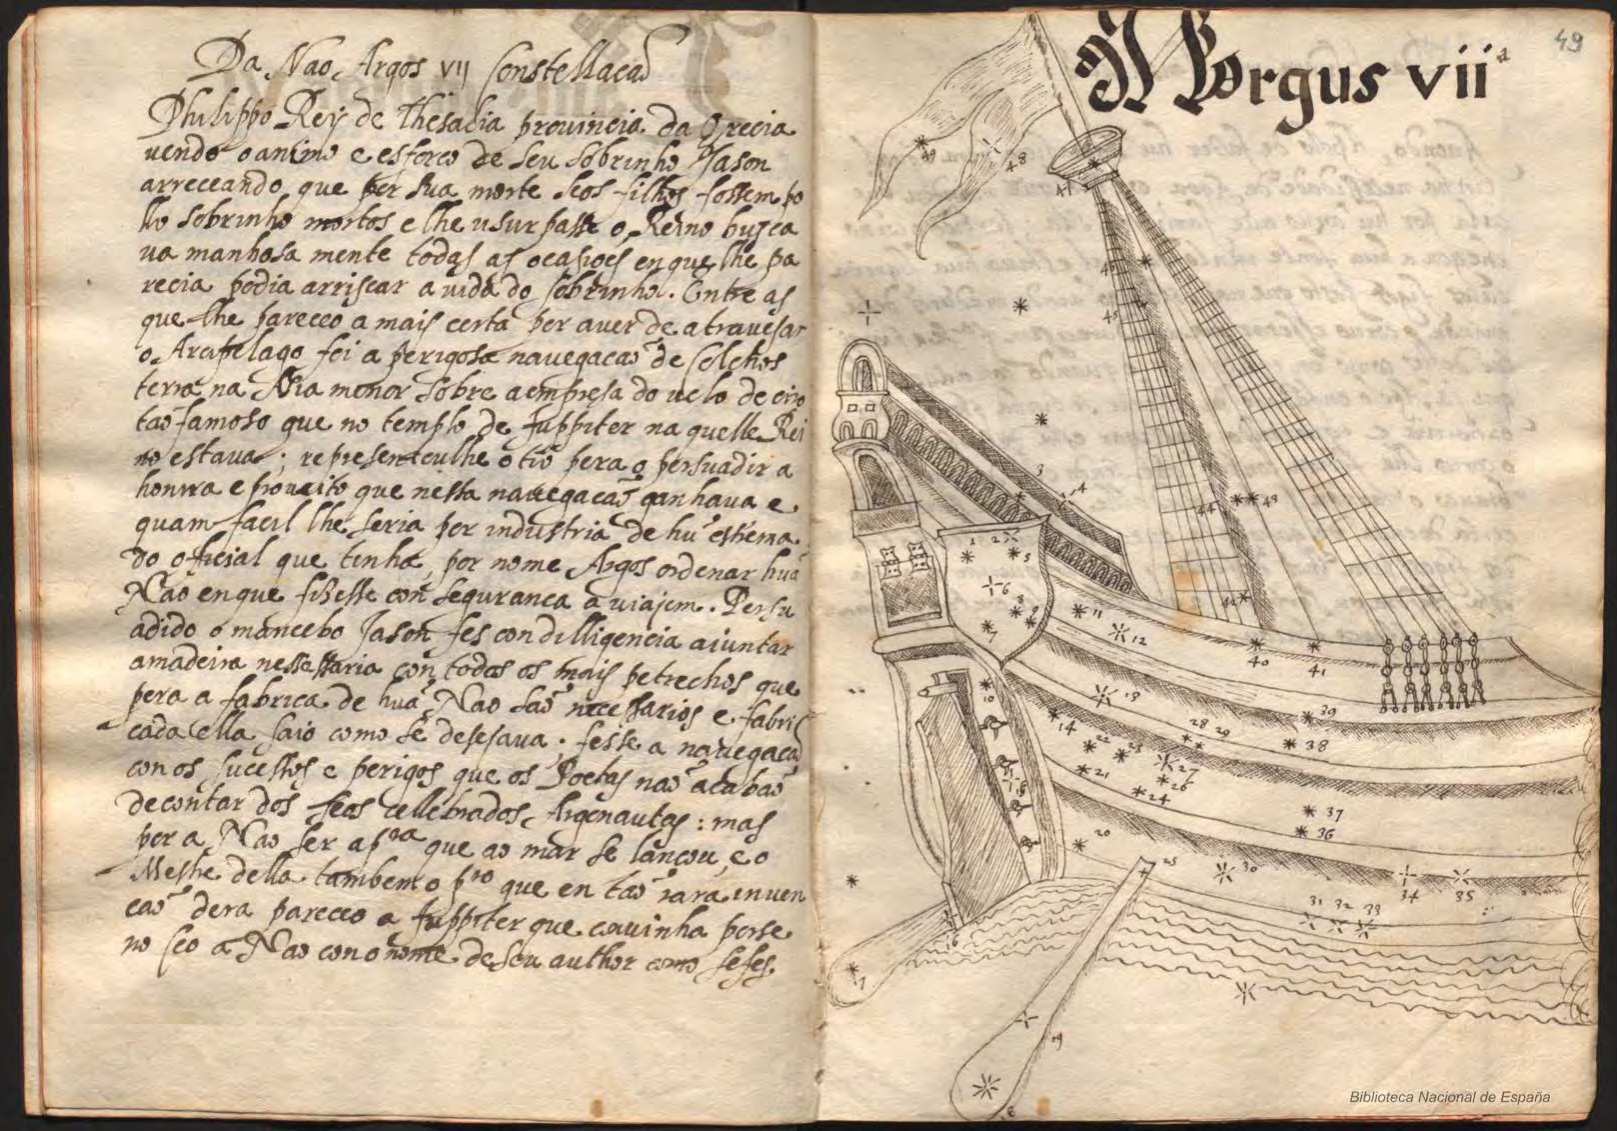 Da Nao Argos VII Constellacaõ
Philippo Rey de Thesadia prouincia da Grecia
uendo o animo e esforco de seu sobrinho Jason
arreceando que per sua morte seos filhos fossem po
llo sobrinho mortos e lhe usurpasse o Reino busca
ua manhosa mente todas as ocasioes en que lhe pa
recia podia arriscar a uida do sobrinho. Entre as
que lhe pareceo a mais certa por auer de atravesar
o Arcipelago foi a perigosa nauegacaõ de Colchos
terra na Asia menor sobre a empresa do uelo de oiro
taõ famoso que no templo de Juppiter na quelle Rei
no estaua; representoulhe o tio pera o persuadir a
honrra e proueito que nesta nauegacaõ ganhaua e
quam facil lhe seria por industria de hũ estrema
do oficial que tinha por nome Argos ordenar huã
Nao en que fisesse con seguranca a uiajem. Persu
adido o mancebo Jason fes con dilligencia aiuntar
a madeira nessessaria con todos os mais petrechos que
pera a fabrica de huã Nao saõ necessarios e fabri
cada ella saio como se desejaua. fesse a nauegacaõ
con os sucessos e perigos que os Poetas naõ acabaõ
de contar dos seos cellebrados Argonautas: mas
por a Nao ser a pra que ao mar se lancou, e o
Mestre della tambem o pro que en taõ rara inuen
caõ dera pareceo a Juppiter que conuinha porse
no seo a Nao con o nome de seu author como se fes.
49
Argus viiª
48
47
46
45
3
4
1 2
5
6
8 9
7
44
43
42
11
12
10
40
41
13
39
38
14
28 29
22 23
27
26
21
24
37
36
20
25
30
34
35
31 32 33
15
16
17
19
18
Biblioteca Nacional de España